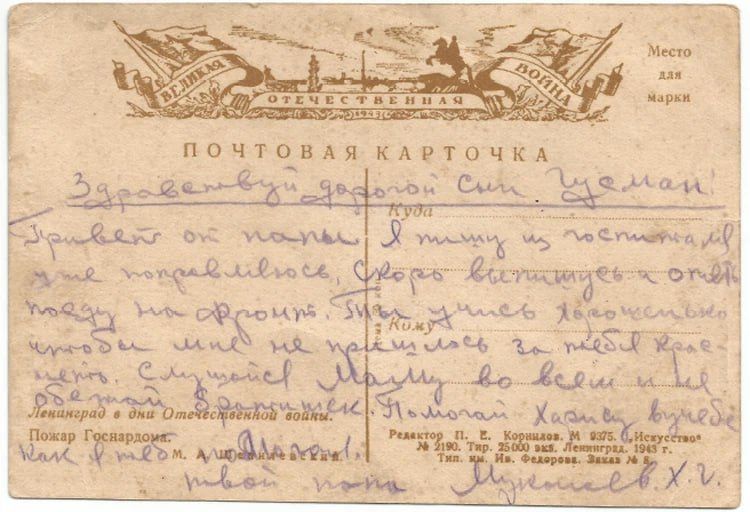 ВЕЛИКАЯ
ОТЕЧЕСТВЕННАЯ
ВОЙНА
1943
Место
для
марки
ПОЧТОВАЯ КАРТОЧКА
Здравствуй дорогой сын Гусман!
Куда
Привет от папы Я пишу из госпиталя
уже поправляюсь. Скоро выпишусь и опять
поеду на фронт. Ты учись хорошенько
Кому
чтобы мне не пришлось за тебя крас-
неть. Слушайся Маму во всем и не
обежай братишек. Помогай Харису в учебе
Ленинград в дни Отечественной войны.
Пожар Госнардома.
М. А.
Редактор П. Е. Корнилов. М 9375. „Искусство"
№ 2190. Тир. 25000 экз. Ленинград. 1943 г.
Тип. им. Ив. Федорова. Заказ № 8
как я тебе
твой папа Х. Г.